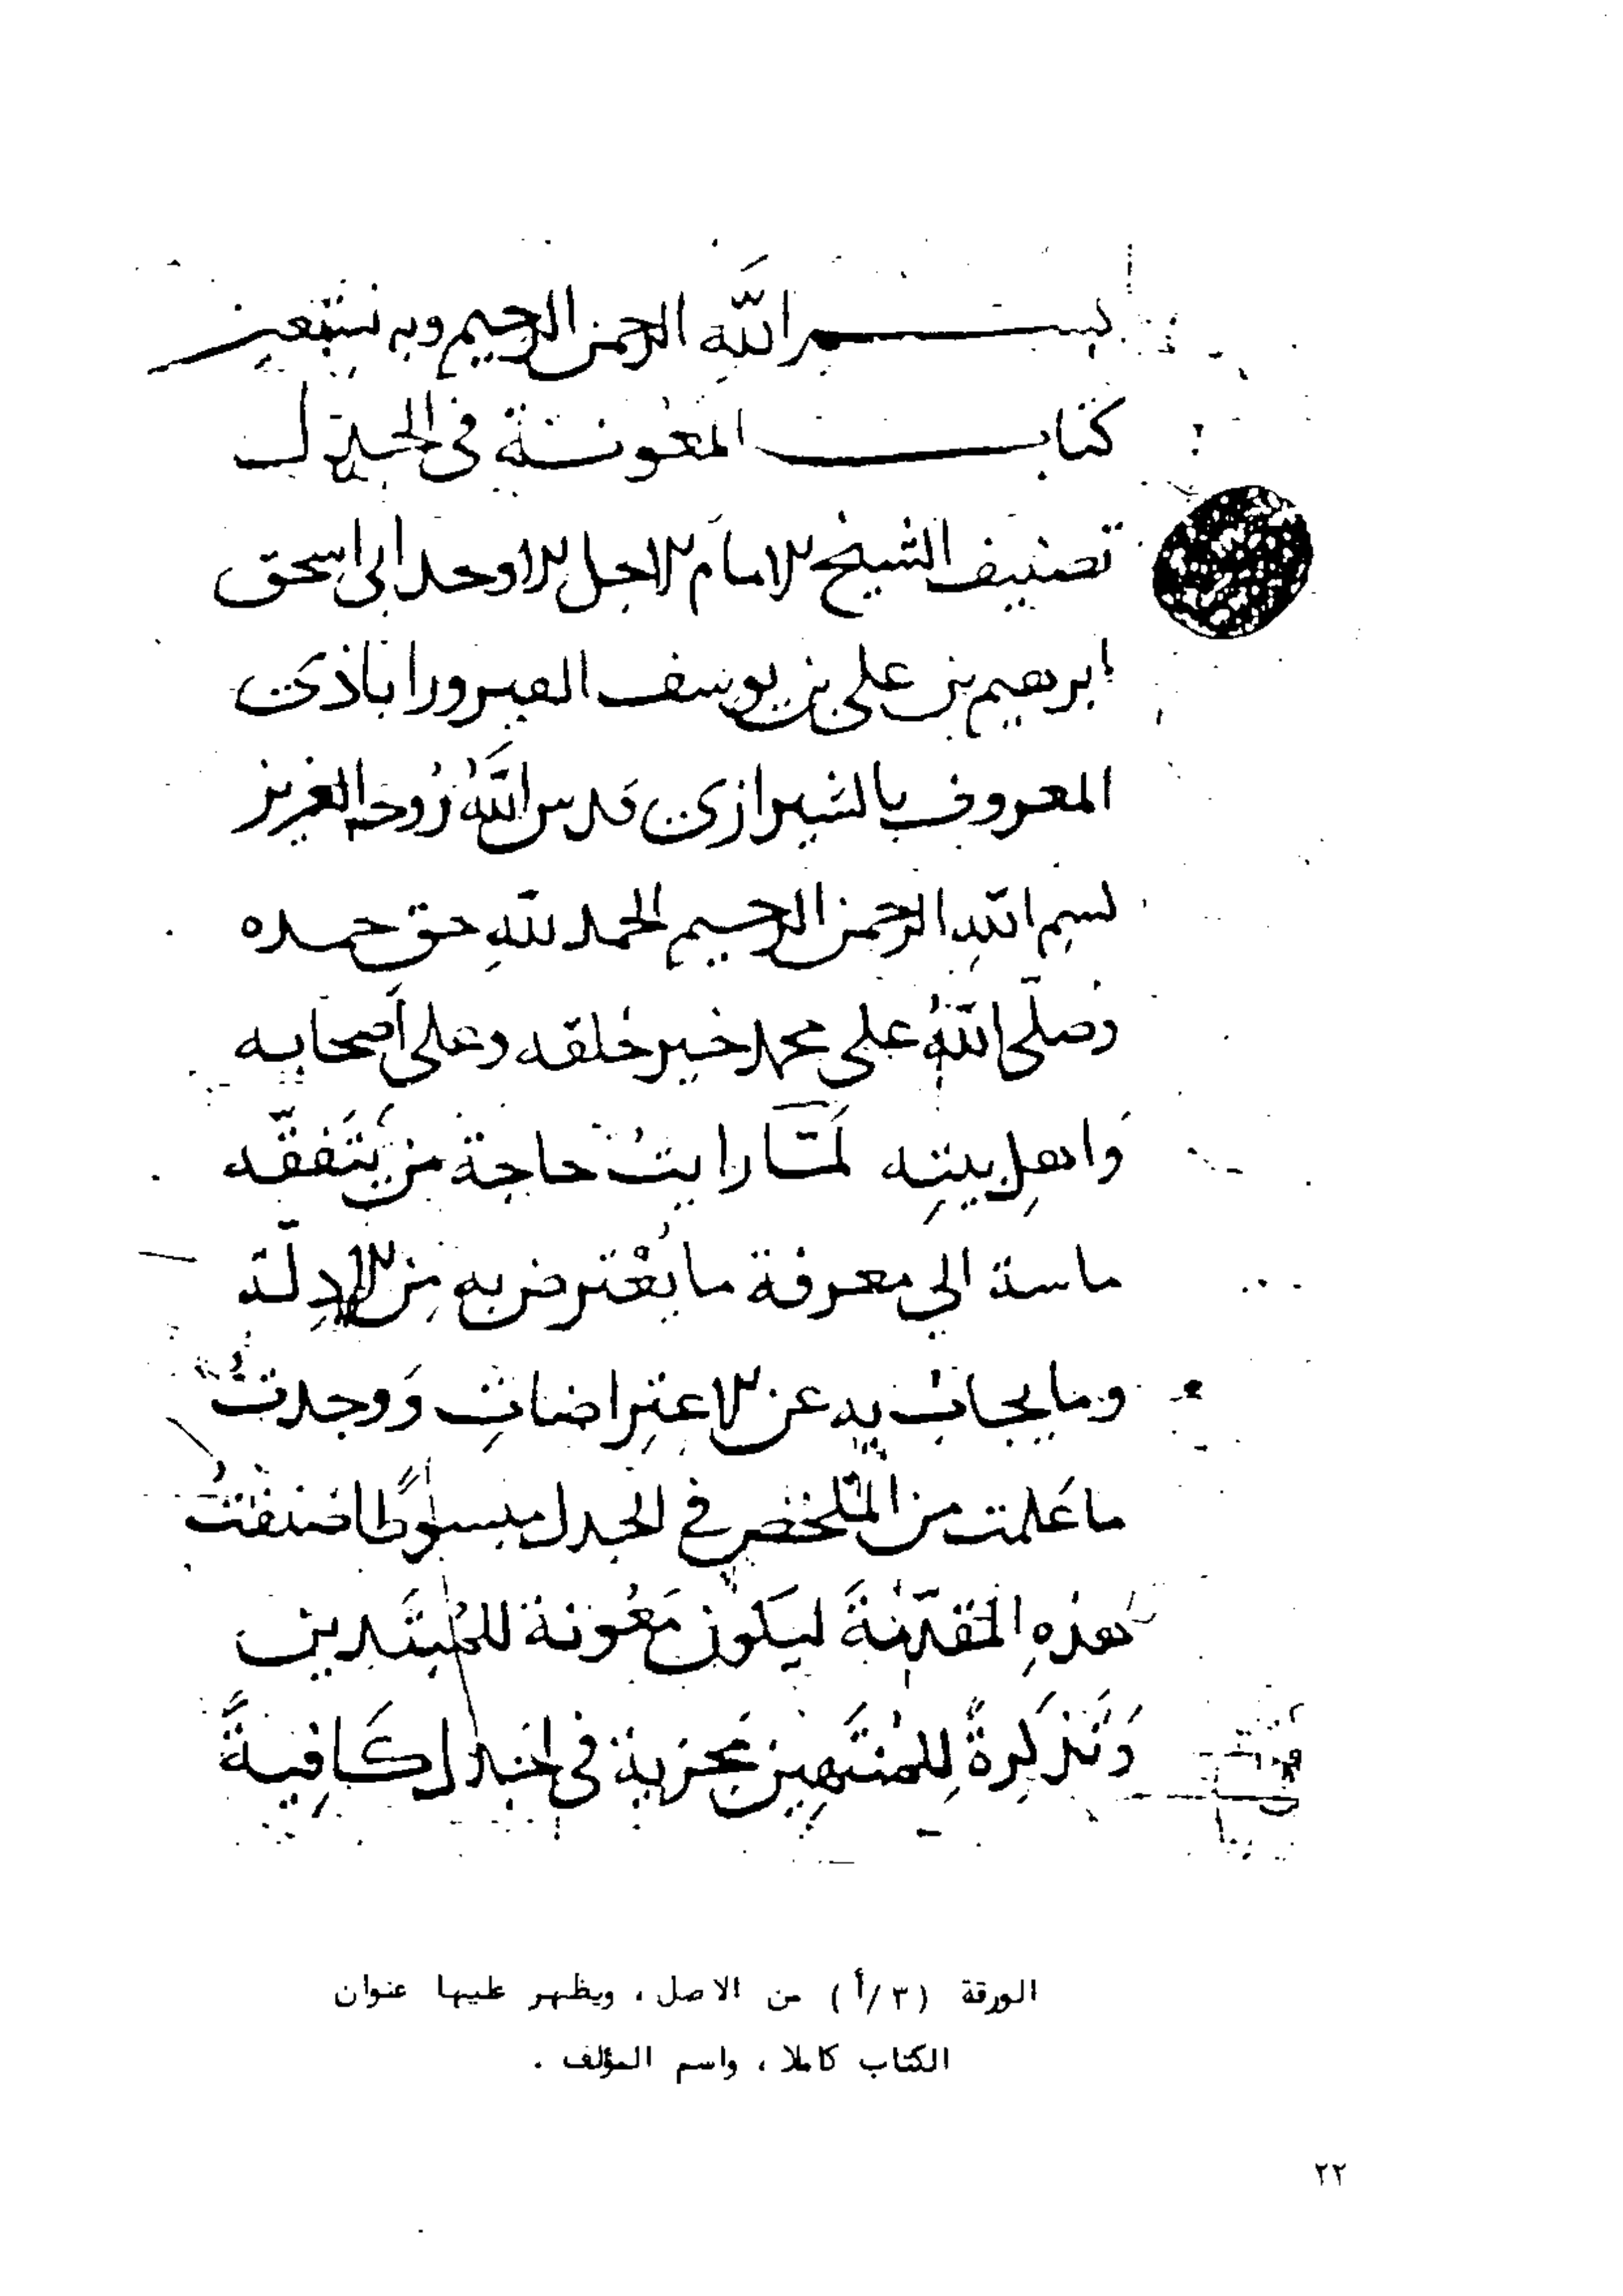 بسم الله الرحمن الرحيم وبه نستعين
كتاب المعونة في الجدل
تصنيف الشيخ الامام الاجل الاوحد ابى اسحق
ابرهيم بن على بن يوسف الفيروراباذى
المعروف بالشيرازى قدس اللهُ رُوحه العزيز
بسم اللهِ الرحمن الرحيم الحمد للهِ حق حمده
وصلّى اللهُ على محمد خير خلقه وعلى أصحابه
وَاهلِ بيتِه لَمّا رايتُ حاجة من يَتَفَقّه
ماسة الى معرفة ما يُعْترض به مِن الادِلّة
وما يجابُ به عن الاعتِراضاتِ وَوجدتُ
ما عَملت من الملخّص في الجدل مبسوطًا صنفتُ
هذهِ المقدّمةَ ليَكون مَعُونة للمُبتَدين
وَتَذكِرةً لِلمُنتَهِين مجزية فى الجدل كَافِيةً
الورقة (٣/أ) من الاصل، ويظهر عليها عنوان
الكتاب كاملا، واسم المؤلف .
٢٢